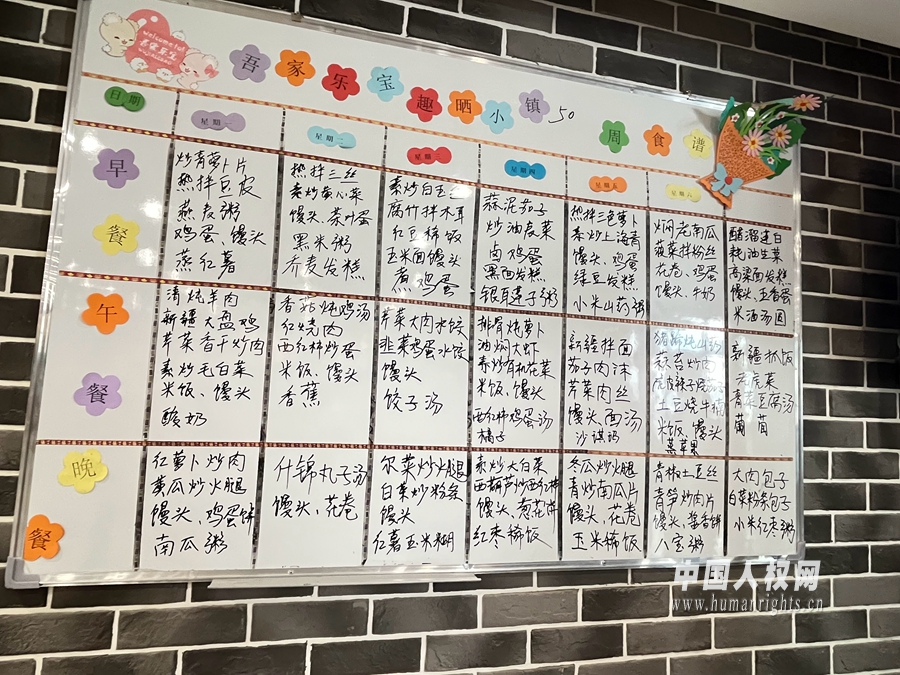 Welcome to
吾家乐宝
趣晒小镇 50
周食谱
日期 星期一 星期二 星期三 星期四 星期五 星期六
早餐
炒青萝卜片
热拌豆皮
燕麦粥
鸡蛋、馒头
蒸红薯
热拌三丝
素炒黄心菜
馒头、茶叶蛋
黑米粥
荞麦发糕
素炒白玉
腐竹拌木耳
红豆稀饭
玉米面馒头
煮鸡蛋
蒜泥茄子
炒油麦菜
卤鸡蛋
黑面发糕
银耳莲子粥
热拌三色萝卜
素炒上海青
馒头、鸡蛋
绿豆发糕
小米山药粥
焖老南瓜
菠菜拌粉丝
花卷、鸡蛋
馒头、牛奶
醋溜莲白
耗油生菜
高粱面发糕
馒头、五香蛋
米酒汤圆
午餐
清炖羊肉
新疆大盘鸡
芹菜香干炒肉
素炒毛白菜
米饭、馒头
酸奶
香菇炖鸡汤
红烧肉
西红柿炒蛋
米饭、馒头
香蕉
芹菜大肉水饺
韭菜鸡蛋水饺
馒头
饺子汤
排骨炖萝卜
油焖大虾
素炒有机花菜
米饭、馒头
西红柿鸡蛋汤
橘子
新疆拌面
茄子肉沫
芹菜肉丝
馒头、面汤
沙琪玛
猪蹄炖山药
蒜苔炒肉
虎皮辣子
土豆烧牛腩
米饭、馒头
蒸苹果
新疆抓饭
老虎菜
青菜豆腐汤
葡萄
晚餐
红萝卜炒肉
黄瓜炒火腿
馒头、鸡蛋饼
南瓜粥
什锦丸子汤
馒头、花卷
尕菜炒火腿
白菜炒粉条
馒头
红薯玉米糊
素炒大白菜
西葫芦炒西红柿
馒头、葱花饼
红枣稀饭
冬瓜炒火腿
青炒南瓜片
馒头、花卷
玉米稀饭
青椒土豆丝
青笋炒肉片
馒头、酱香饼
八宝粥
大肉包子
白菜粉条包子
小米红枣粥
中国人权网
www.humanrights.cn